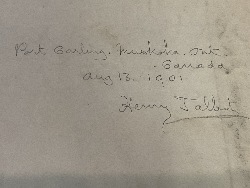 Port Carling. Muskoka. Ont.
Canada
Aug 13. 1901
Henry Talbot